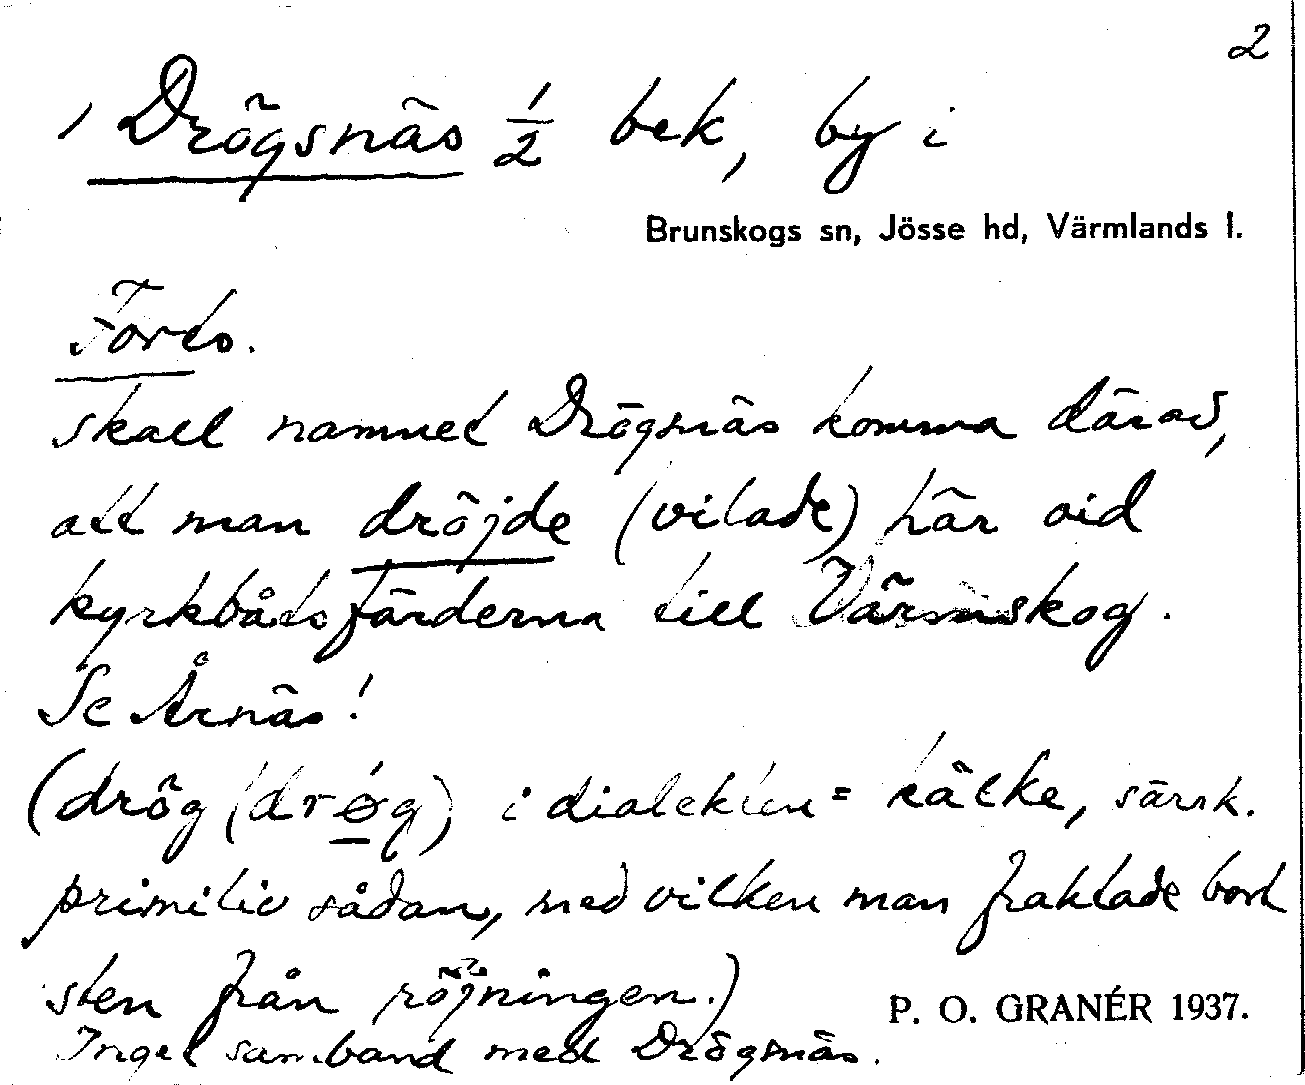 2
/ Drögsnäs 1/2 bek, by i
Brunskogs sn, Jösse hd, Värmlands l.
Forts.
skall namnet Drögsnäs komma därav,
att man dröjde (vilade) här vid
kyrkbåtsfärderna till Värmskog.
Se Årnäs!
(drög (drǿg) i dialekten = kälke, särsk.
primitiv sådan, med vilken man fraktade bort
sten från röjningen.)
P. O. GRANÉR 1937.
Inget samband med Drögsnäs.